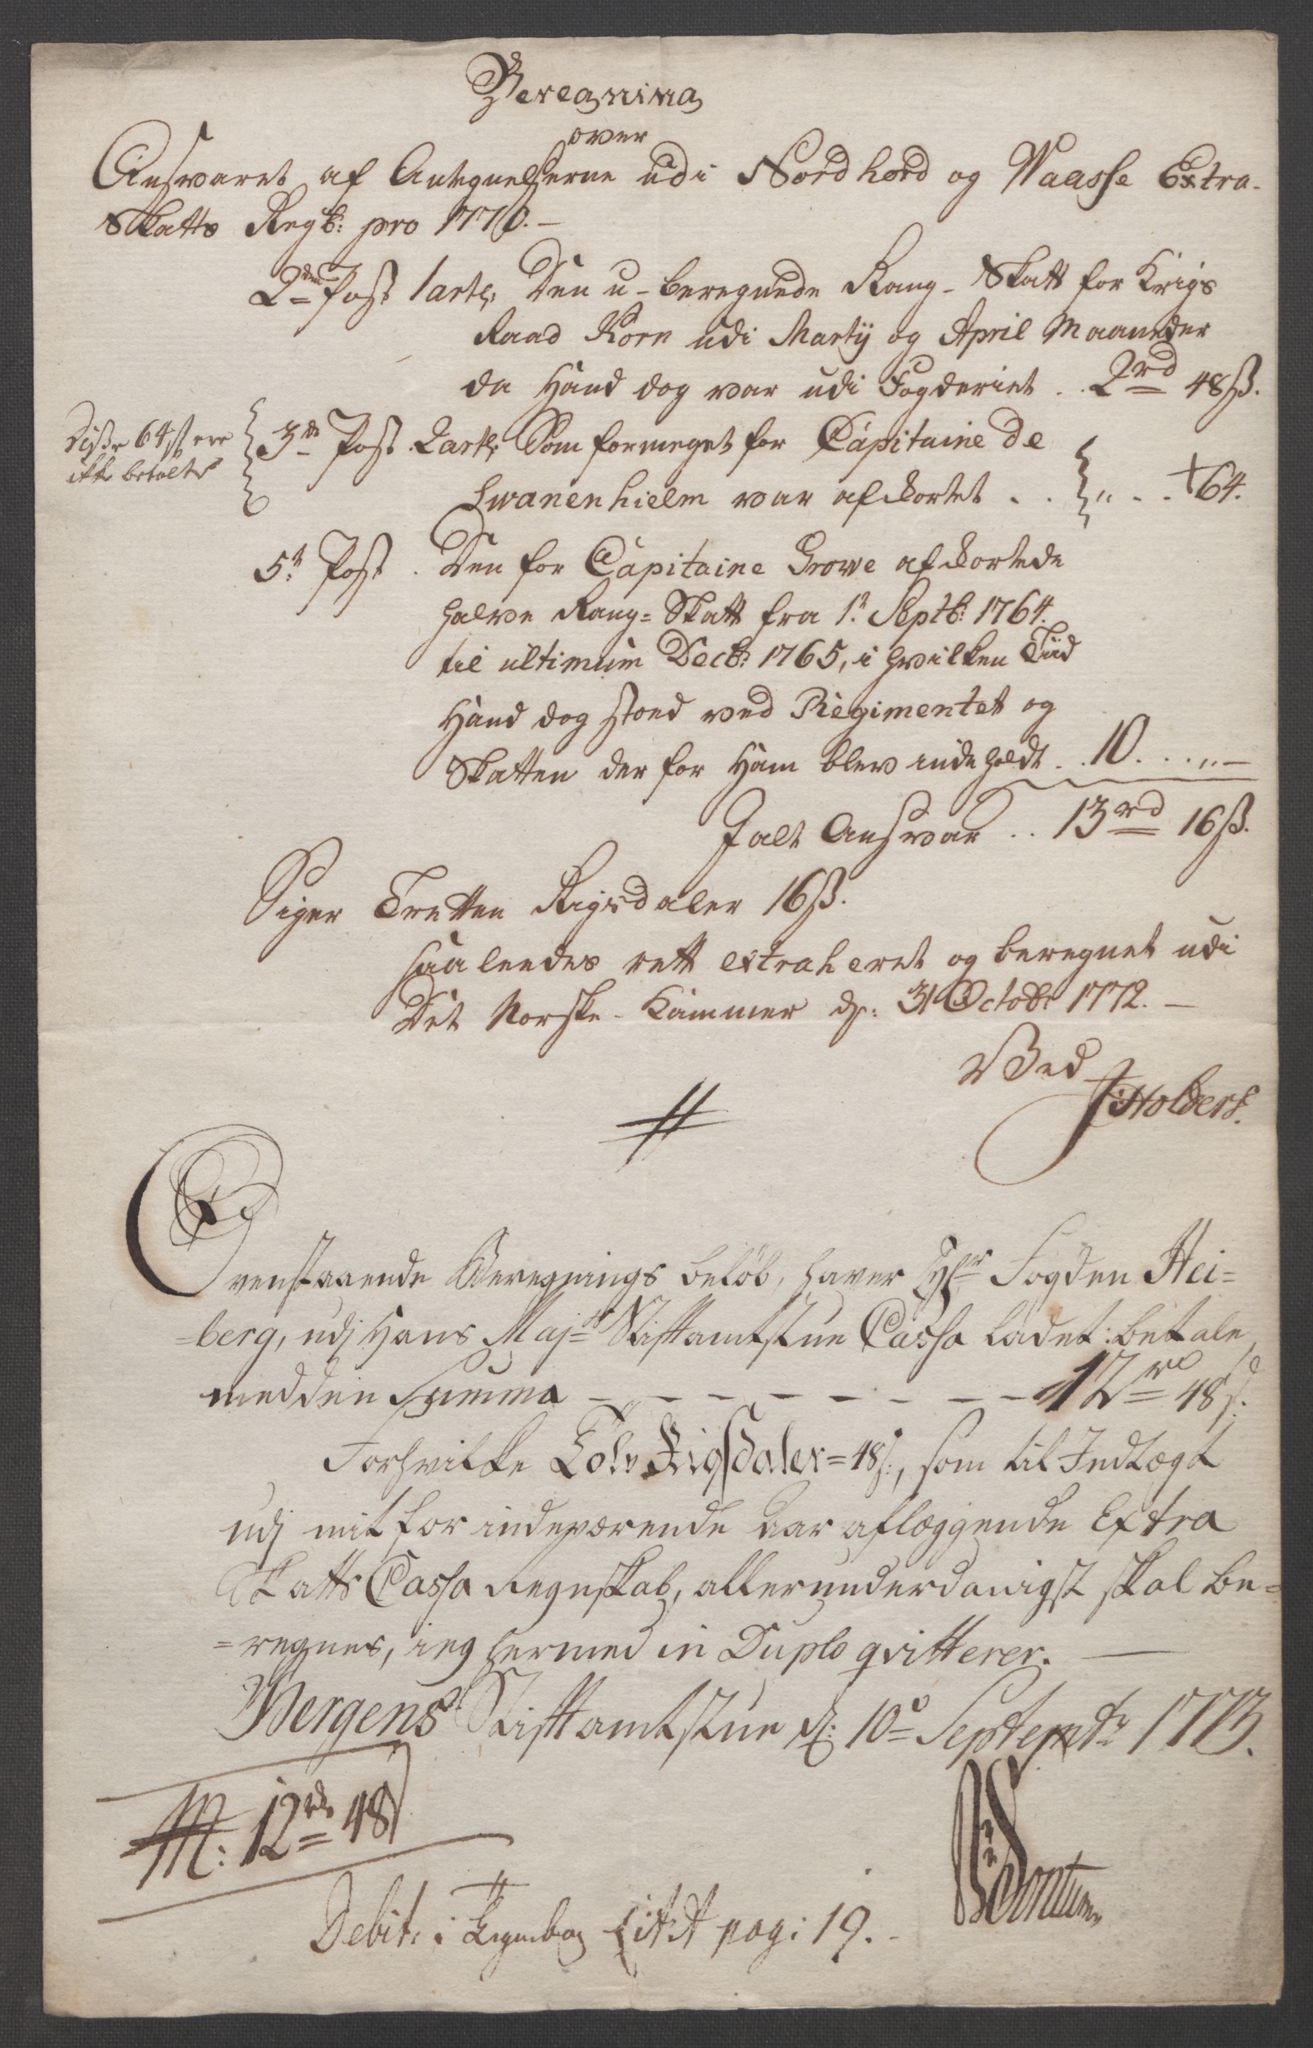 Beregning
over
Ansvaret af Antegnelserne udi Nordhord og Waasse Extra-
Skatts Regsk: pro 1770.-
2den Post 1 art: Den u-beregnede Rang-Skatt for Krigs
Raad Korn udi Martij og April Maaneder
da Hand dog var udi Fogderiet . . 2rd 48ß.
Disse 64 ß ere
ikke betalte
3de Post 2 art: Som formeget for Capitaine de
Swanenhielm var afkortet . . „ . . † 64.
5te Post . Den for Capitaine Grove afkortede
halve Rang-Skatt fra 1te Septb: 1764.
til ultimum Decb: 1765, i hvilken Tiid
Hand dog stoed ved Regimentet og
Skatten der for Ham blev indeholdt . . 10. . . . „-
Jalt Ansvar . . 13rd 16ß.
Siger Tretten Rigsdaler 16ß.
saaleedes rett extraheret og beregnet udi
Det Norske-Kammer d: 31 Octobr 1772.-
Ved
J Holbers.
Ovenstaaende Beregnings beløb, haver Hr Fogden Hei=
=berg, udj Hans Majts Stiftamtstue Cassa ladet betale
med den Summa - - - - - - - 12rd 48ß.
Forhvilke Tolv Rigsdaler = 48ß:, som til Indtægt
udj mit for indeværende Aar aflæggende Extra
Skatts Cassa Regnskab, allerunderdanigst skal be=
=regnes, ieg hermed in Duplo qvitterer.
Bergens Stiftamtstue d: 10de Septembr 1773.
12rd 48
Fontum
Debit: i Lit A pag: 19.